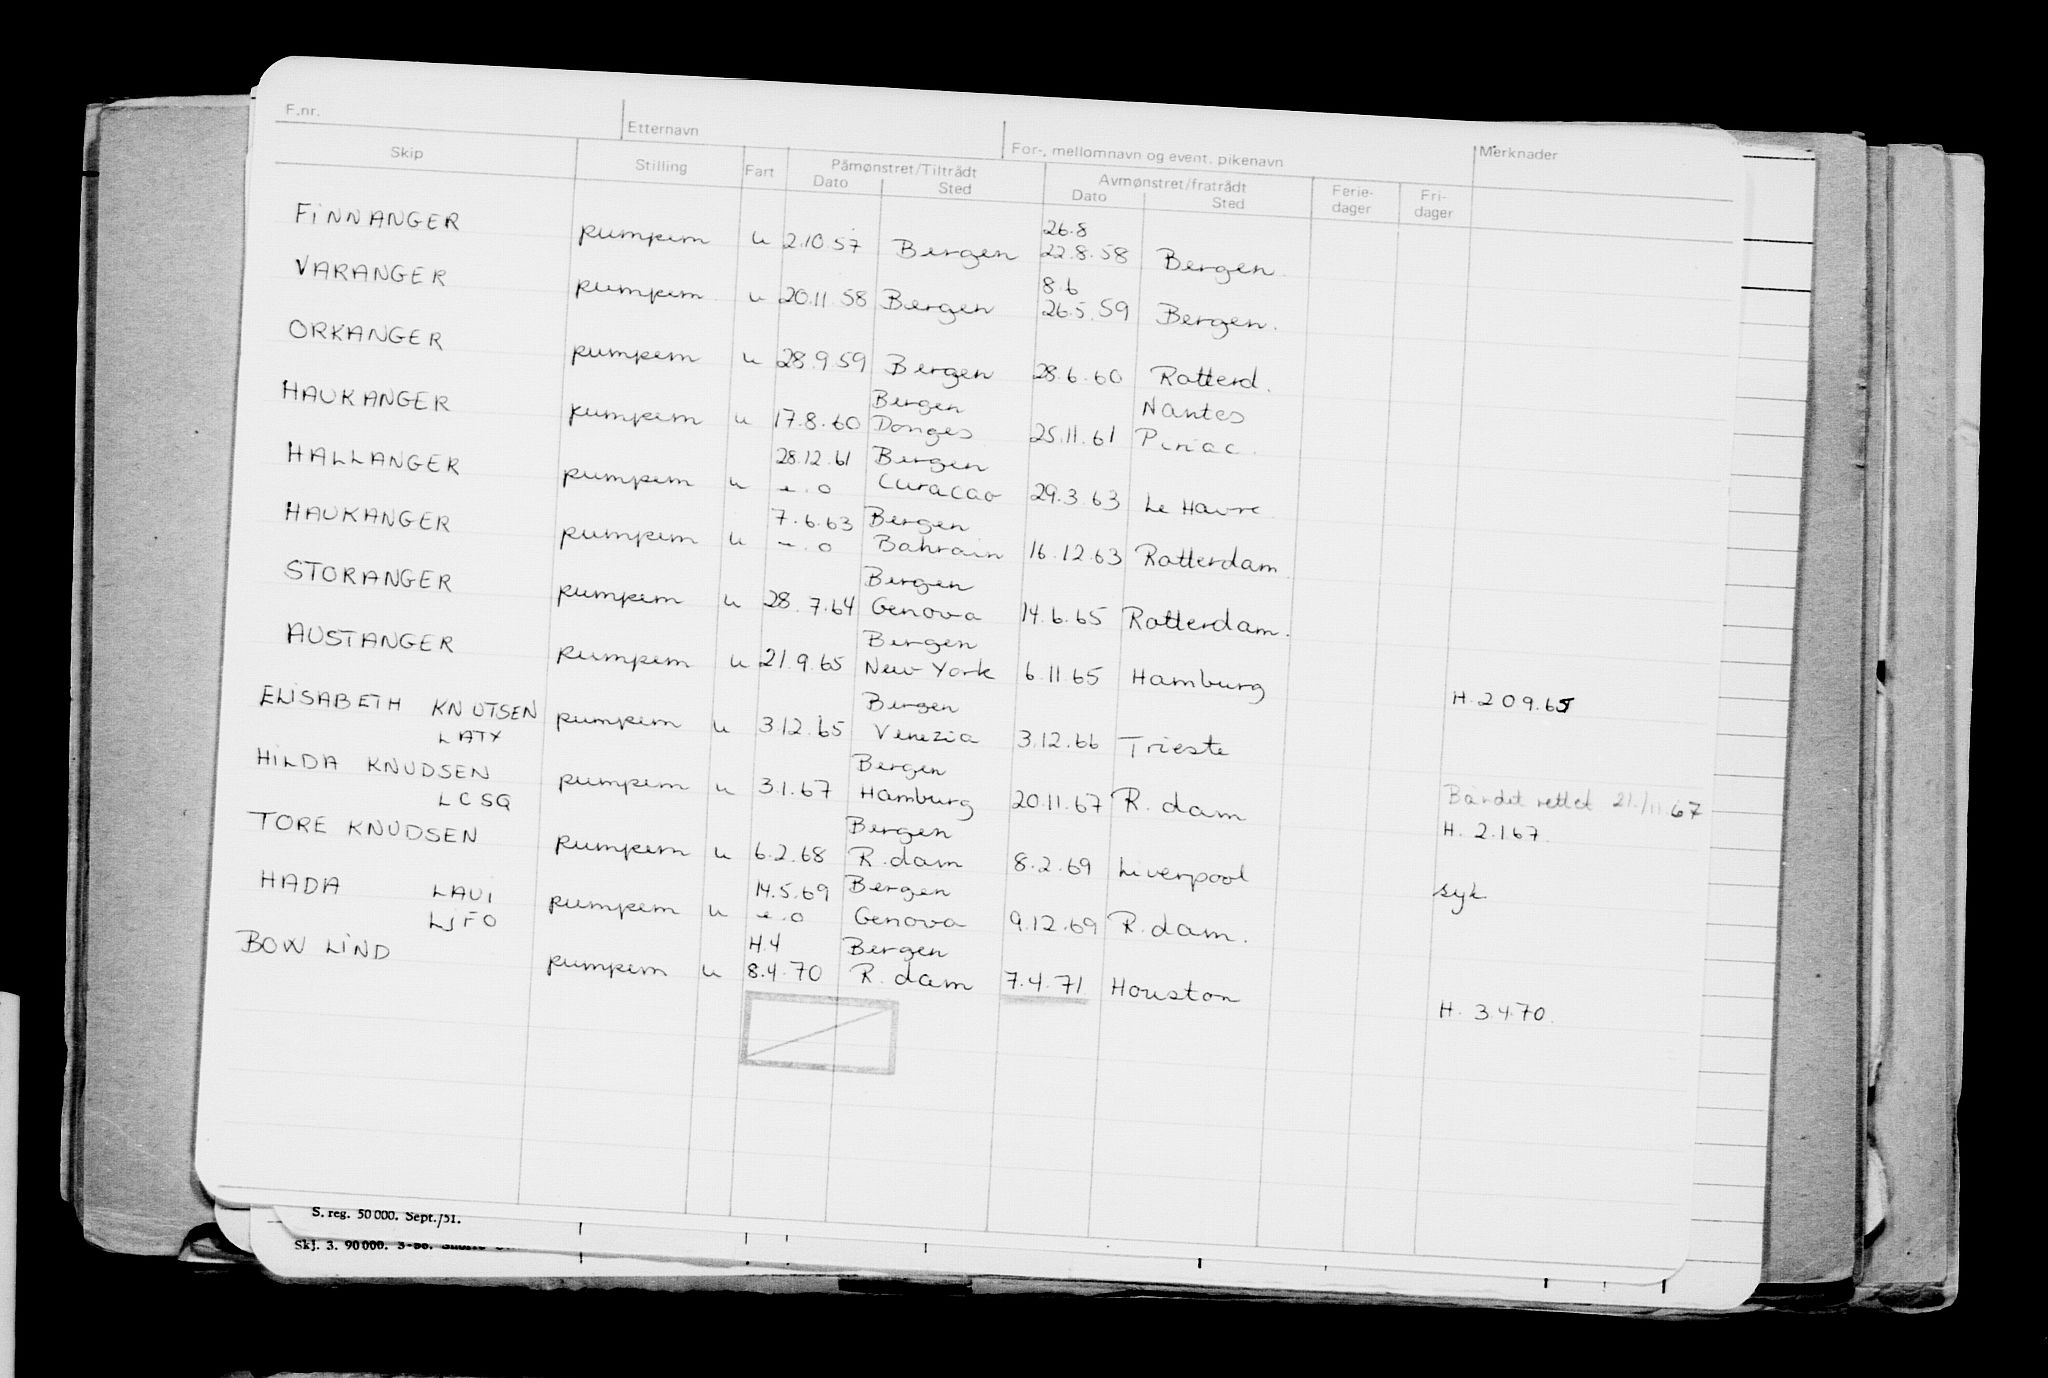 F.nr. Etternavn For-, mellomnavn og event. pikenavn
Skip Stilling Fart Påmønstret/Tiltrådt Avmønstret/fratrådt Ferie- Fri- Merknader
Dato Sted Dato Sted dager dager
26.8
FINNANGER pumpem u 2.10.57 Bergen 22.8.58 Bergen.
8.6
VARANGER pumpem u 20.11.58 Bergen 26.5.59 Bergen.
ORKANGER pumpem u 28.9.59 Bergen 28.6.60 Rotterd.
Bergen Nantes
HAUKANGER pumpem u 17.8.60 Donges 25.11.61 Piriac.
28.12.61 Bergen
HALLANGER pumpem u e.o Curacao 29.3.63 Le Havre
7.6.63 Bergen
HAUKANGER pumpem u e.o Bahrain 16.12.63 Rotterdam.
Bergen
STORANGER pumpem u 28.7.64 Genova 14.6.65 Rotterdam.
Bergen
AUSTANGER pumpem u 21.9.65 New York 6.11.65 Hamburg H. 20 9.65
Bergen
ELISABETH KNUTSEN pumpem u 3.12.65 Venezia 3.12.66 Trieste
LATX
Bergen
HILDA KNUDSEN pumpem u 3.1.67 Hamburg 20.11.67 R.dam Båndet rettet 21/11.67
LCSG H. 2.1.67.
Bergen
TORE KNUDSEN pumpem u 6.2.68 R.dam 8.2.69 Liverpool syk
LAUI
14.5.69 Bergen
HADA pumpem u e.o Genova 9.12.69 R.dam.
LJFO
H.4 Bergen
BOW LIND pumpem u 8.4.70 R.dam 7.4.71 Houston H. 3.4.70.
S. reg. 50 000. Sept./51.
Skj. 3. 90 000. 3-56.